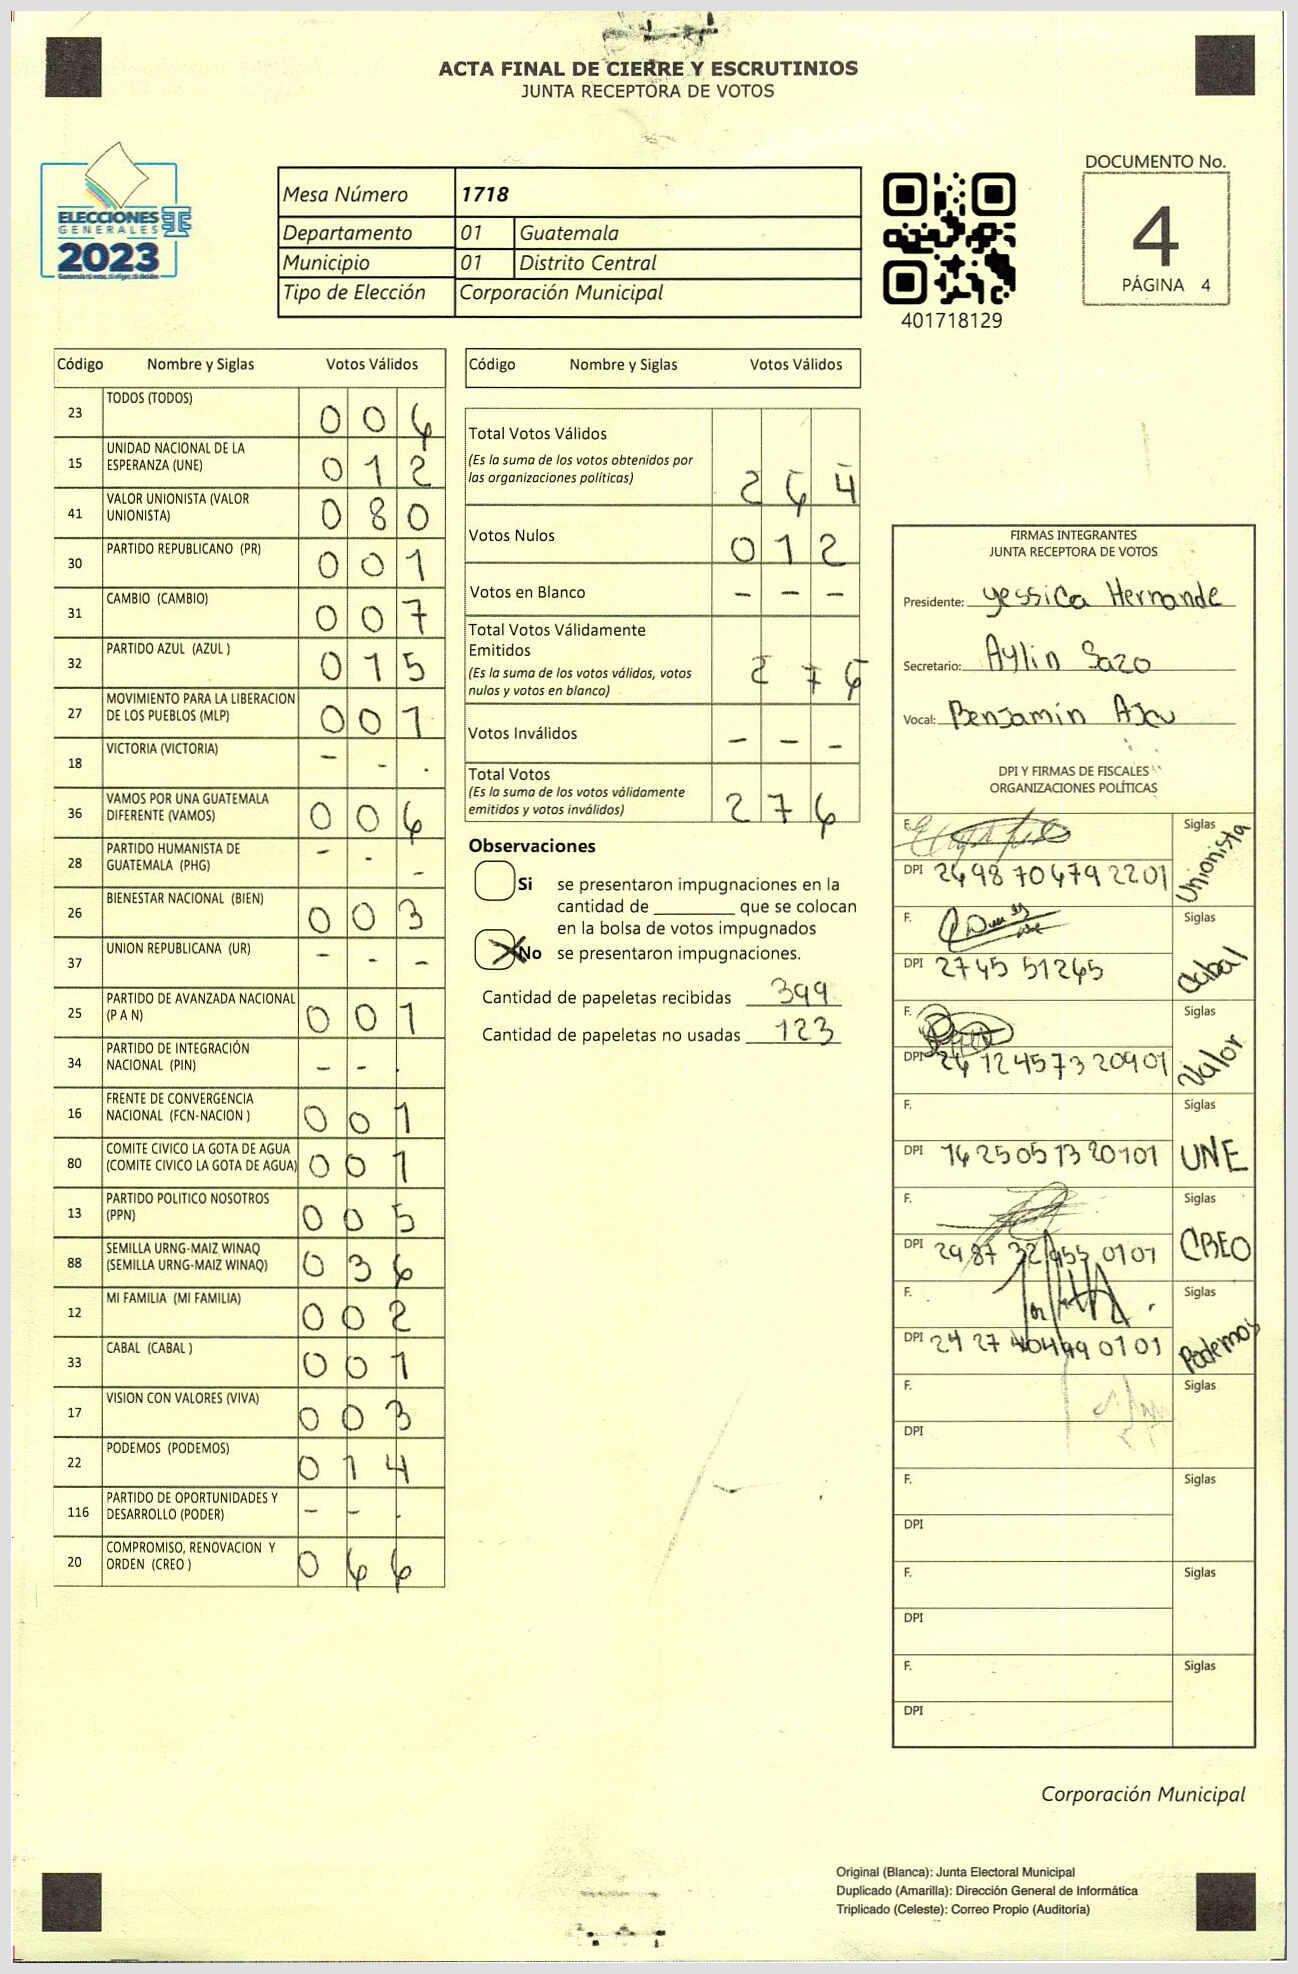 ACTA FINAL DE CIERRE Y ESCRUTINIOS
JUNTA RECEPTORA DE VOTOS
ELECCIONES
GENERALES
2023
Mesa Número 1718
Departamento 01 Guatemala
Municipio 01 Distrito Central
Tipo de Elección Corporación Municipal
401718129
DOCUMENTO No.
4
PÁGINA 4
Código Nombre y Siglas Votos Válidos
23 TODOS (TODOS) 0 0 6
15 UNIDAD NACIONAL DE LA ESPERANZA (UNE) 0 1 2
41 VALOR UNIONISTA (VALOR UNIONISTA) 0 8 0
30 PARTIDO REPUBLICANO (PR) 0 0 1
31 CAMBIO (CAMBIO) 0 0 7
32 PARTIDO AZUL (AZUL ) 0 1 5
27 MOVIMIENTO PARA LA LIBERACION DE LOS PUEBLOS (MLP) 0 0 1
18 VICTORIA (VICTORIA) - - -
36 VAMOS POR UNA GUATEMALA DIFERENTE (VAMOS) 0 0 6
28 PARTIDO HUMANISTA DE GUATEMALA (PHG) - - -
26 BIENESTAR NACIONAL (BIEN) 0 0 3
37 UNION REPUBLICANA (UR) - - -
25 PARTIDO DE AVANZADA NACIONAL (P A N) 0 0 1
34 PARTIDO DE INTEGRACIÓN NACIONAL (PIN) - - -
16 FRENTE DE CONVERGENCIA NACIONAL (FCN-NACION ) 0 0 1
80 COMITE CIVICO LA GOTA DE AGUA (COMITE CIVICO LA GOTA DE AGUA) 0 0 1
13 PARTIDO POLITICO NOSOTROS (PPN) 0 0 5
88 SEMILLA URNG-MAIZ WINAQ (SEMILLA URNG-MAIZ WINAQ) 0 3 6
12 MI FAMILIA (MI FAMILIA) 0 0 2
33 CABAL (CABAL ) 0 0 1
17 VISION CON VALORES (VIVA) 0 0 3
22 PODEMOS (PODEMOS) 0 1 4
116 PARTIDO DE OPORTUNIDADES Y DESARROLLO (PODER) - - -
20 COMPROMISO, RENOVACION Y ORDEN (CREO ) 0 6 6
Código Nombre y Siglas Votos Válidos
Total Votos Válidos
(Es la suma de los votos obtenidos por
las organizaciones políticas) 2 6 4
Votos Nulos 0 1 2
Votos en Blanco - - -
Total Votos Válidamente
Emitidos
(Es la suma de los votos válidos, votos
nulos y votos en blanco) 2 7 6
Votos Inválidos - - -
Total Votos
(Es la suma de los votos válidamente
emitidos y votos inválidos) 2 7 6
Observaciones
Si se presentaron impugnaciones en la
cantidad de ________ que se colocan
en la bolsa de votos impugnados
No se presentaron impugnaciones.
Cantidad de papeletas recibidas 399
Cantidad de papeletas no usadas 123
FIRMAS INTEGRANTES
JUNTA RECEPTORA DE VOTOS
Presidente: Yessica Hernande
Secretario: Aylin Sazo
Vocal: Benjamin
DPI Y FIRMAS DE FISCALES
ORGANIZACIONES POLÍTICAS
F. Siglas Unionista
DPI 2498 70479 2201
F. Siglas Cabal
DPI 2745 51265
F. Siglas Valor
DPI 2612457320901
F. Siglas UNE
DPI 1625051320101 
F. Siglas CREO
DPI 0101
F. Siglas Podemos
DPI 0101
F. Siglas
DPI
F. Siglas
DPI
F. Siglas
DPI
F. Siglas
DPI
Corporación Municipal
Original (Blanca): Junta Electoral Municipal
Duplicado (Amarilla): Dirección General de Informática
Triplicado (Celeste): Correo Propio (Auditoría)